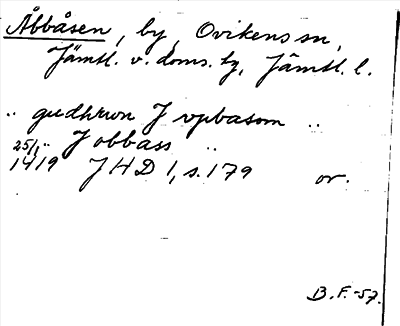 Åbbåsen, by, Ovikens sn,
Jämtl. v. doms. tg, Jämtl. l.
" gudhrun J vpbasom "
" J obbass "
25/1 1419 JHD 1, s. 179 or.
B. F. -57.